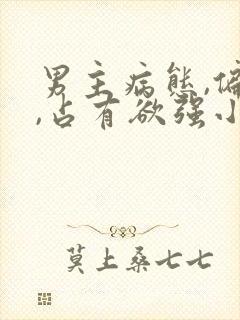 男主病态,偏
,占有欲强小
莫上桑七七